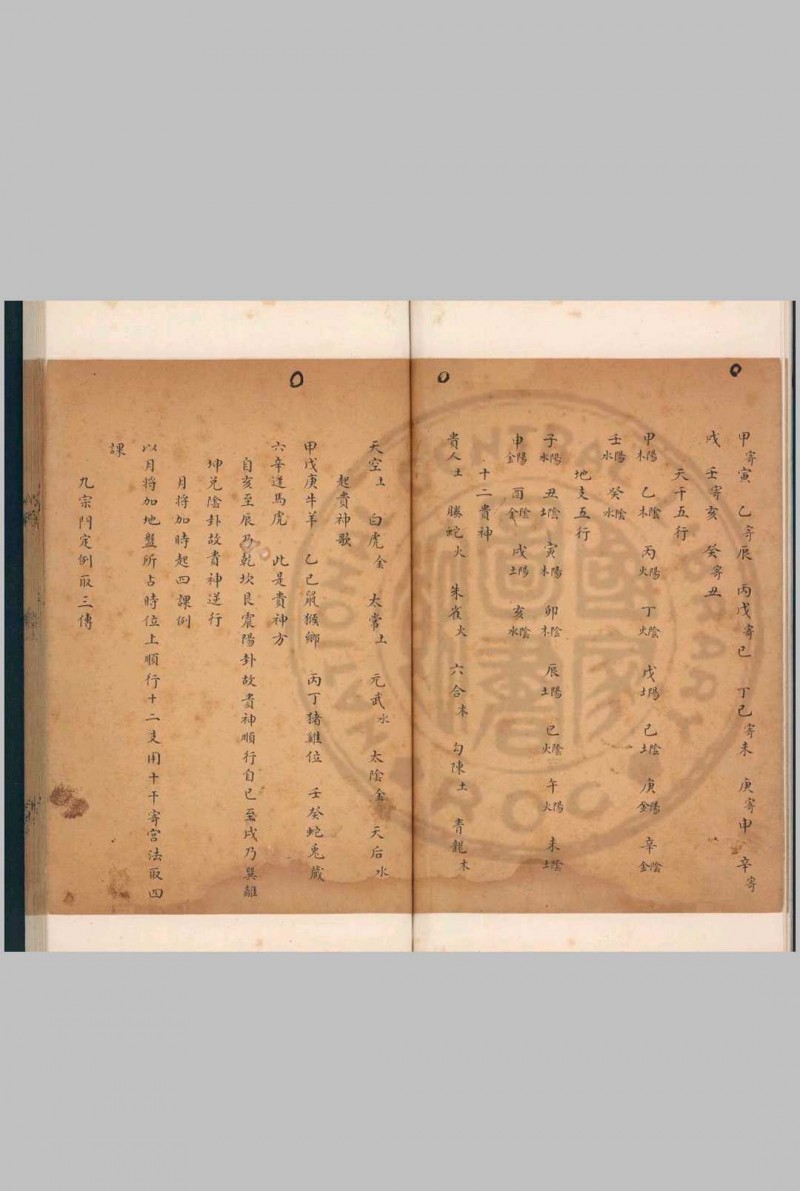 甲寄寅　乙寄辰　丙戊寄巳　丁己寄未　庚寄申　辛寄
戌　壬寄亥　癸寄丑
天干五行
甲陽木　乙陰木　丙陽火　丁陰火　戊陽土　己陰土　庚陽金　辛陰金
壬陽水　癸陰水
地支五行
子陽水　丑陰土　寅陽木　卯陰木　辰陽土　巳陰火　午陽火　未陰土
申陽金　酉陰金　戌陽土　亥陰水
十二貴神
貴人土　螣蛇火　朱雀火　六合木　勾陳土　青龍木
天空土　白虎金　太常土　元武水　太陰金　天后水
起貴神歌
甲戊庚牛羊　乙己鼠猴鄉　丙丁猪雞位　壬癸蛇兎藏
六辛逢馬虎　此是貴神方
自亥至辰乃乾坎艮震陽卦故貴神順行自巳至戌乃巽離
坤兌陰卦故貴神逆行
月將加時起四課例
以月將加地盤所占時位上順行十二支用十干寄宮法取四
課
九宗門定例取三傳
NATIONAL CENTRAL LIBRARY
ROC
國家圖書